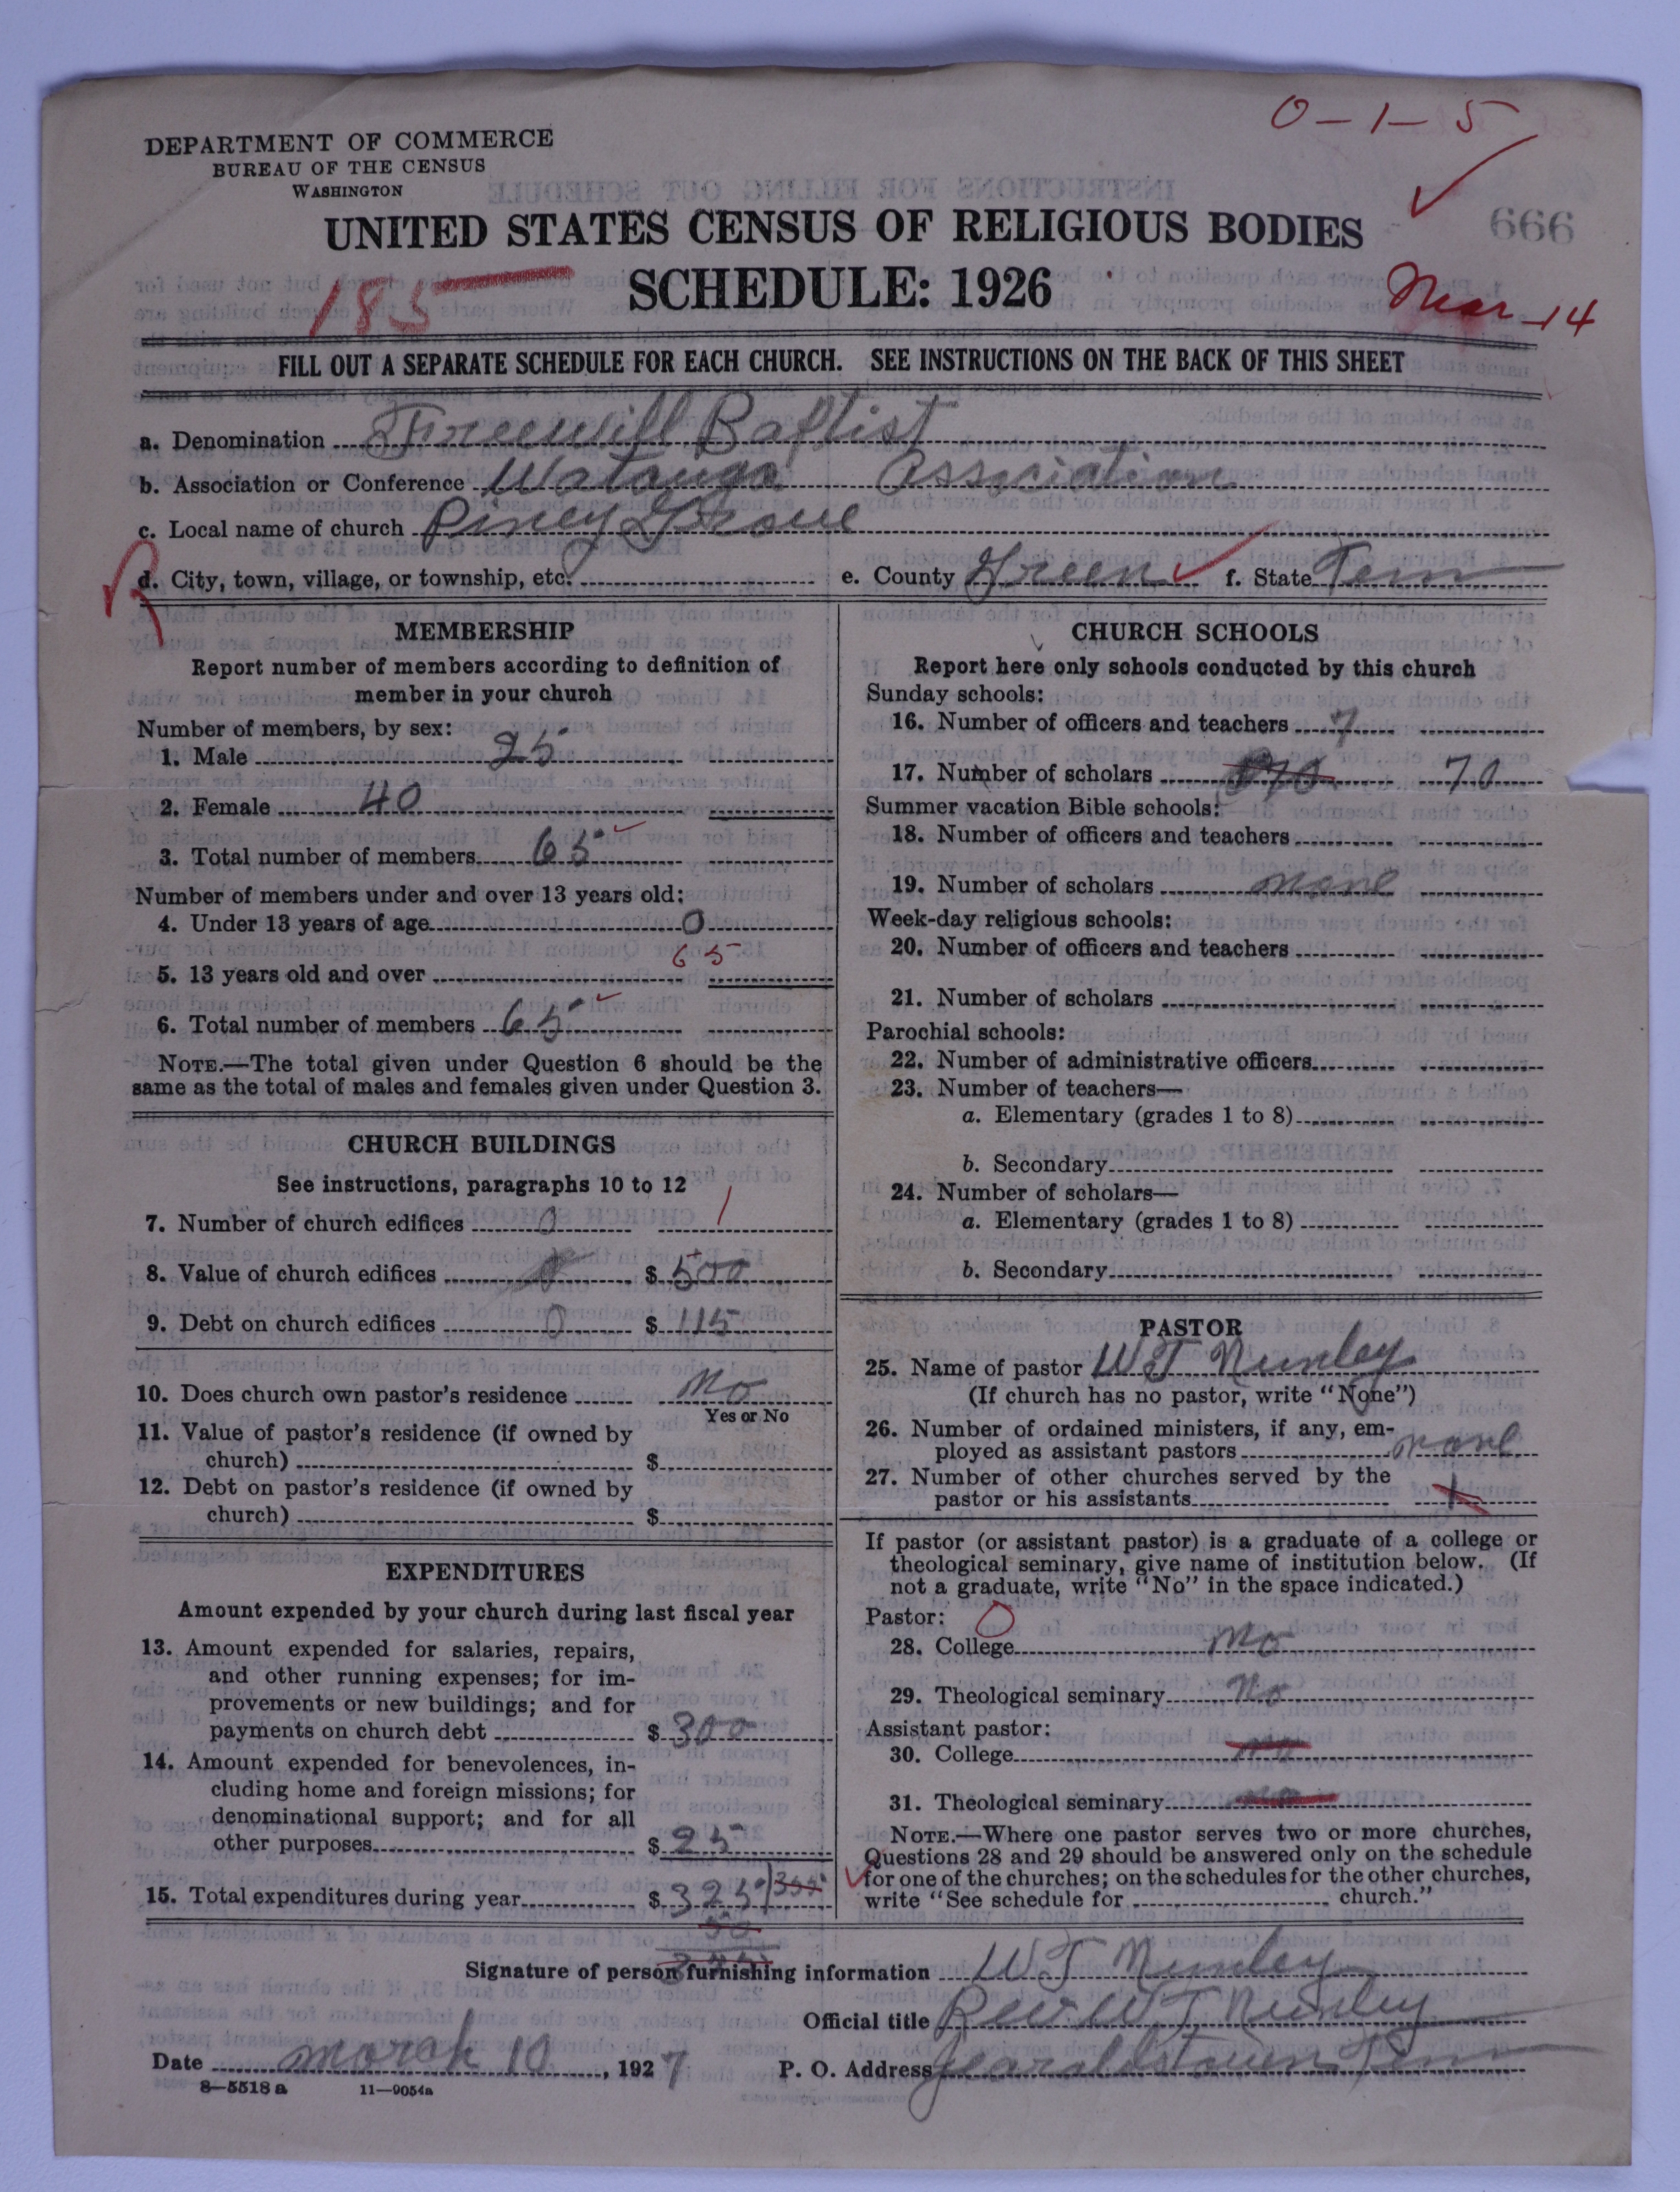 0-1-5
DEPARTMENT OF COMMERCE
BUREAU OF THE CENSUS
WASHINGTON
666
UNITED STATES CENSUS OF RELIGIOUS BODIES
SCHEDULE: 1926
185
Mar 14
FILL OUT A SEPARATE SCHEDULE FOR EACH CHURCH. SEE INSTRUCTIONS ON THE BACK OF THIS SHEET
a. Denomination Freewill Baptist
b. Association or Conference Watauga Association
c. Local name of church Piney Grove
R
d. City, town, village, or township, etc. e. County Green f. State Tenn
MEMBERSHIP
Report number of members according to definition of
member in your church
Number of members, by sex:
1. Male 25
2. Female 40
3. Total number of members 65
Number of members under and over 13 years old:
4. Under 13 years of age 0
5. 13 years old and over 65
6. Total number of members 65
NOTE.—The total given under Question 6 should be the
same as the total of males and females given under Question 3.
CHURCH BUILDINGS
See instructions, paragraphs 10 to 12
7. Number of church edifices 0 1
8. Value of church edifices 0 $ 500
9. Debt on church edifices 0 $ 115
10. Does church own pastor's residence No
Yes or No
11. Value of pastor's residence (if owned by
church) $
12. Debt on pastor's residence (if owned by
church) $
EXPENDITURES
Amount expended by your church during last fiscal year
13. Amount expended for salaries, repairs,
and other running expenses; for im-
provements or new buildings; and for
payments on church debt $ 300
14. Amount expended for benevolences, in-
cluding home and foreign missions; for
denominational support; and for all
other purposes $ 25
15. Total expenditures during year $ 325
50
CHURCH SCHOOLS
Report here only schools conducted by this church
Sunday schools:
16. Number of officers and teachers 7
17. Number of scholars 70
Summer vacation Bible schools:
18. Number of officers and teachers
19. Number of scholars none
Week-day religious schools:
20. Number of officers and teachers
21. Number of scholars
Parochial schools:
22. Number of administrative officers
23. Number of teachers—
a. Elementary (grades 1 to 8)
b. Secondary
24. Number of scholars—
a. Elementary (grades 1 to 8)
b. Secondary
PASTOR
25. Name of pastor W T Nunley
(If church has no pastor, write "None")
26. Number of ordained ministers, if any, em-
ployed as assistant pastors none
27. Number of other churches served by the
pastor or his assistants
If pastor (or assistant pastor) is a graduate of a college or
theological seminary, give name of institution below. (If
not a graduate, write "No" in the space indicated.)
Pastor: 0
28. College No
29. Theological seminary No
Assistant pastor:
30. College no
31. Theological seminary no
NOTE.—Where one pastor serves two or more churches,
Questions 28 and 29 should be answered only on the schedule
for one of the churches; on the schedules for the other churches,
write "See schedule for church."
Signature of person furnishing information W T Nunley
Official title Rev W T Nunley
Date March 10, 1927 P. O. Address Jearoldstown Tenn
8—5518 a 11—9054a